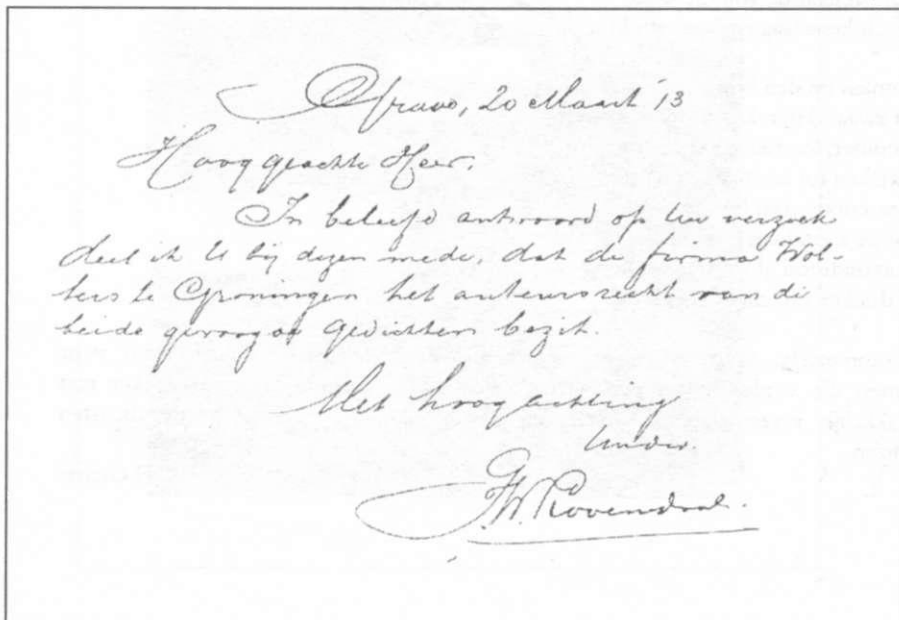 20 Maart '13
Hooggeachte Heer,
In beleefd antwoord op Uw verzoek
deel ik U bij dezen mede, dat de firma Wol-
ters te Groningen het auteursrecht van de
beide gevraagde gedichten bezit.
Met hoogachting